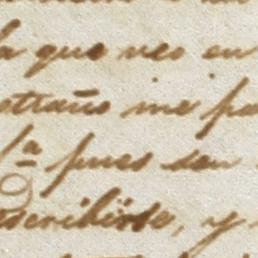 la que veo en
estraño me pa
pues son
escribirse, y